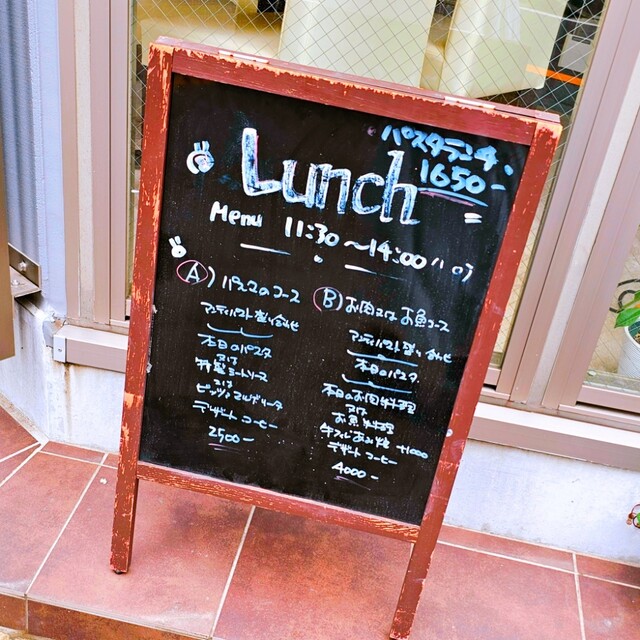 パスタランチ
1650-
Lunch
Menu 11:30~14:00
A) パスタのコース
アンティパスト盛り合わせ
本日のパスタ
又は
特製ミートソース
又は
ピッツァマルゲリータ
デザート コーヒー
2500-
B) お肉又はお魚コース
アンティパスト盛り合わせ
本日のパスタ
本日のお肉料理
又は
お魚料理
牛フィレあみ焼 +1000
デザート コーヒー
4000-